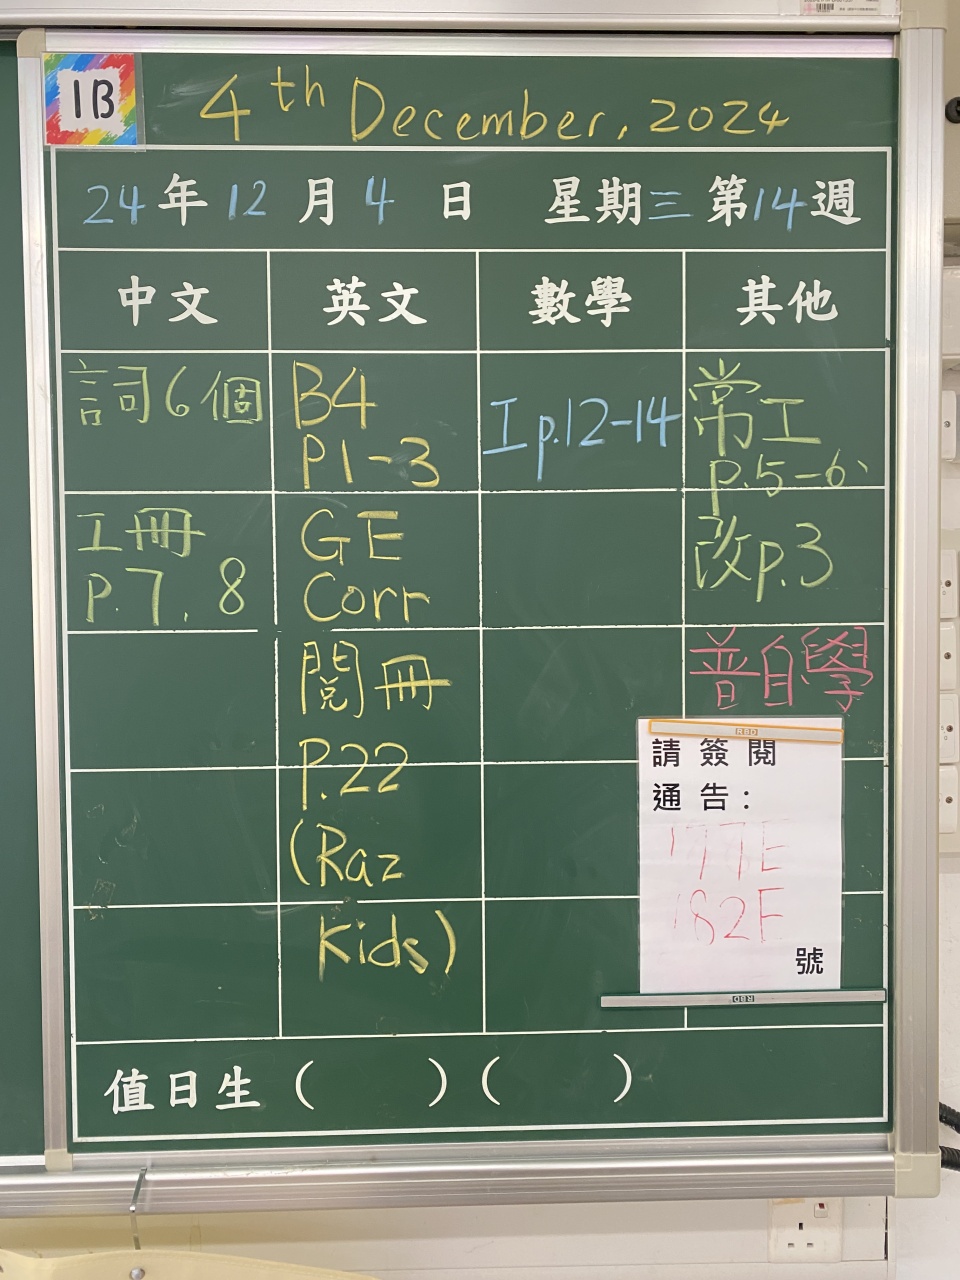 1B
4th December, 2024
24年12月4日 星期三第14週
中文 英文 數學 其他
詞6個
工冊
P.7, 8
B4
P1-3
GE
Corr
閱冊
P.22
(Raz
Kids)
I p.12-14
常工
p.5-6
改p.3
普自學
RBD
請簽閱
通告:
177E
182E
號
RBD
值日生 ( ) ( )